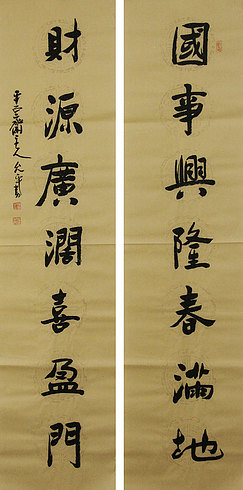 國事興隆春滿地
財源廣濶喜盈門
主人